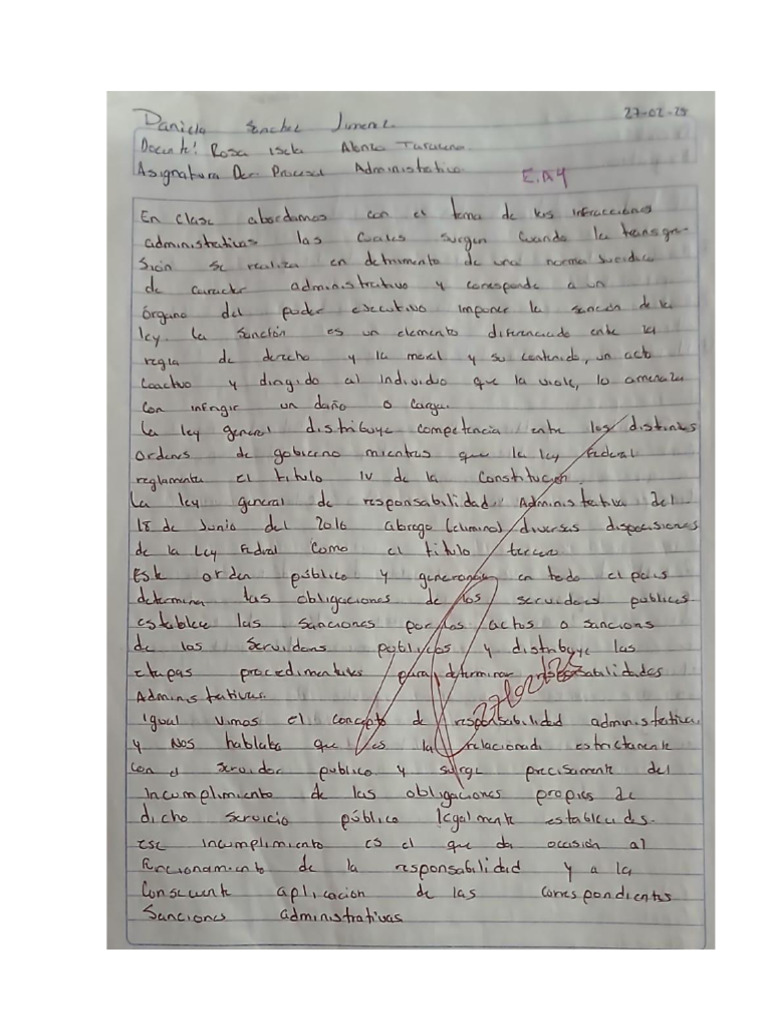 27-02-25
Daniela Sanchez Jimenez
Docente: Rosa Isela
Asignatura Der Procesal Administrativo
E.A4
En clase abordamos con el tema de las infracciones
administrativas las cuales surgen cuando la transgre-
sión se realiza en detrimento de una norma
de caracter administrativo y corresponde a un
órgano del poder ejecutivo imponer la sanción de la
ley. la sanción es un elemento diferenciado entre la
regla de derecho y la moral y su contenido, un acto
coactivo y dirigido al individuo que la viole, lo amenaza
con infringir un daño o carga.
La ley general distribuye competencia entre los distintos
ordenes de gobierno mientras que la ley Federal
reglamenta el titulo IV de la Constitución.
La ley general de responsabilidad Administrativa del
18 de Junio del 2016 abrogo (elimino) diversas disposisiones
de la Ley Federal como el titulo tercero
Este orden público y general en todo el pais
determina las obligaciones de los servidores publicos
establece las sanciones por los actos o sancions
de los servidores publicos y distribuye las
etapas procedimentales para determinar responsabilidades
Administrativas.
27/02/25
igual vimos el concepto de responsabilidad administrativa
y nos hablaba que es la relacionada estrictamente
con el servidor publico y surge precisamente del
incumplimiento de las obligaciones propias de
dicho servicio público legalmente establecidas.
ese incumplimiento es el que da ocasión al
funcionamiento de la responsabilidad y a la
consecuente aplicación de las correspondientes
Sanciones administrativas